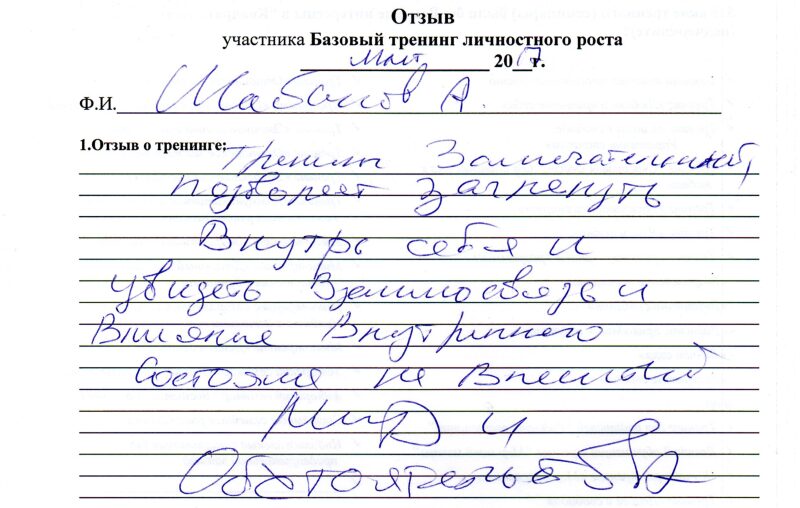 Отзыв
участника Базовый тренинг личностного роста
Март 2017г.
Ф.И. Шабанов А.
1.Отзыв о тренинге: Тренинг Замечательный,
позволяет заглянуть
Внутрь себя и
увидеть Взаимосвязь и
Влияние Внутреннего
состояния на Внешний
Мир и
Обстоятельства